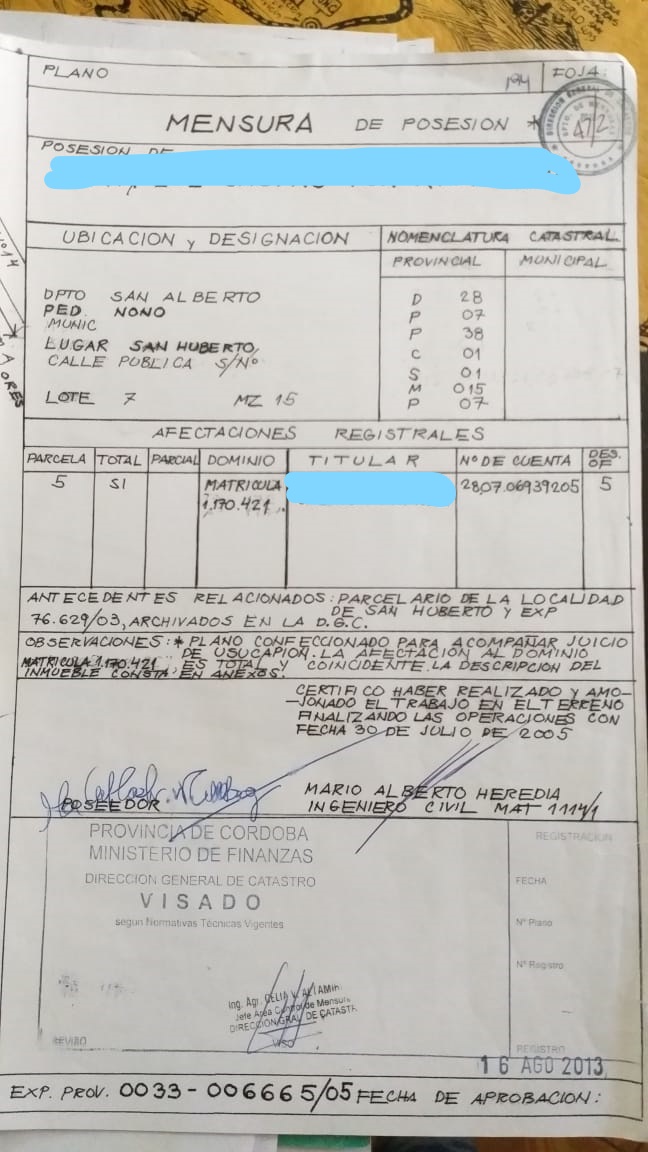 PLANO
194
FOJA:
DIRECCION GENERAL DE
DPTO. DE MENSURAS
47/2
MENSURA DE POSESION *
POSESION DE
UBICACION y DESIGNACION
NOMENCLATURA CATASTRAL
PROVINCIAL
MUNICIPAL
DPTO SAN ALBERTO
PED. NONO
MUNIC
LUGAR SAN HUBERTO
CALLE PUBLICA S/Nº
LOTE 7 MZ 15
D 28
P 07
P 38
C 01
S 01
M 015
P 07
AFECTACIONES REGISTRALES
PARCELA TOTAL PARCIAL DOMINIO TITULAR Nº DE CUENTA DES. OF
5 SI MATRICULA 2807.06939205 5
1.170.421.
ANTECEDENTES RELACIONADOS: PARCELARIO DE LA LOCALIDAD
DE SAN HUBERTO Y EXP
76.629/03, ARCHIVADOS EN LA D.G.C.
OBSERVACIONES: * PLANO CONFECCIONADO PARA ACOMPAÑAR JUICIO
DE USUCAPION. LA AFECTACION AL DOMINIO
MATRICULA 1.170.421, ES TOTAL Y COINCIDENTE. LA DESCRIPCION DEL
INMUEBLE CONSTA EN ANEXOS.
CERTIFICO HABER REALIZADO Y AMO-
JONADO EL TRABAJO EN EL TERRENO
FINALIZANDO LAS OPERACIONES CON
FECHA 30 DE JULIO DE 2005
POSEEDOR
MARIO ALBERTO HEREDIA
INGENIERO CIVIL MAT 1114/1
PROVINCIA DE CORDOBA
MINISTERIO DE FINANZAS
DIRECCION GENERAL DE CATASTRO
VISADO
segun Normativas Técnicas Vigentes
Ing. Agr. CELIA V. ALTAMIR
Jefe Area Control de Mensura
DIRECCION GRAL DE CATASTR
VISO
REVISO
REGISTRACION
FECHA
Nº Plano
Nº Registro
REGISTRO
16 AGO 2013
EXP. PROV. 0033-006665/05 FECHA DE APROBACION: